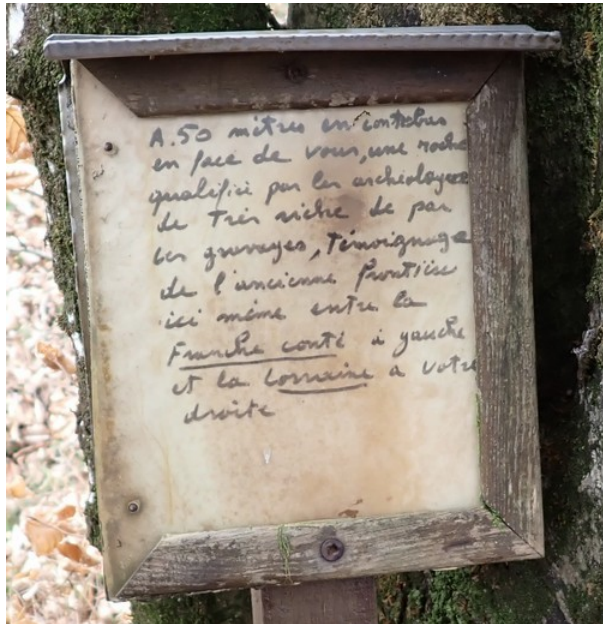 A.50 mètres en contrebas
en face de vous, une roche
qualifié par les archéologues
de Très riche de par
ses gravages, Témoignage
de l'ancienne frontière
ici même entre la
Franche conté à gauche
et la Lorraine a votre
droite